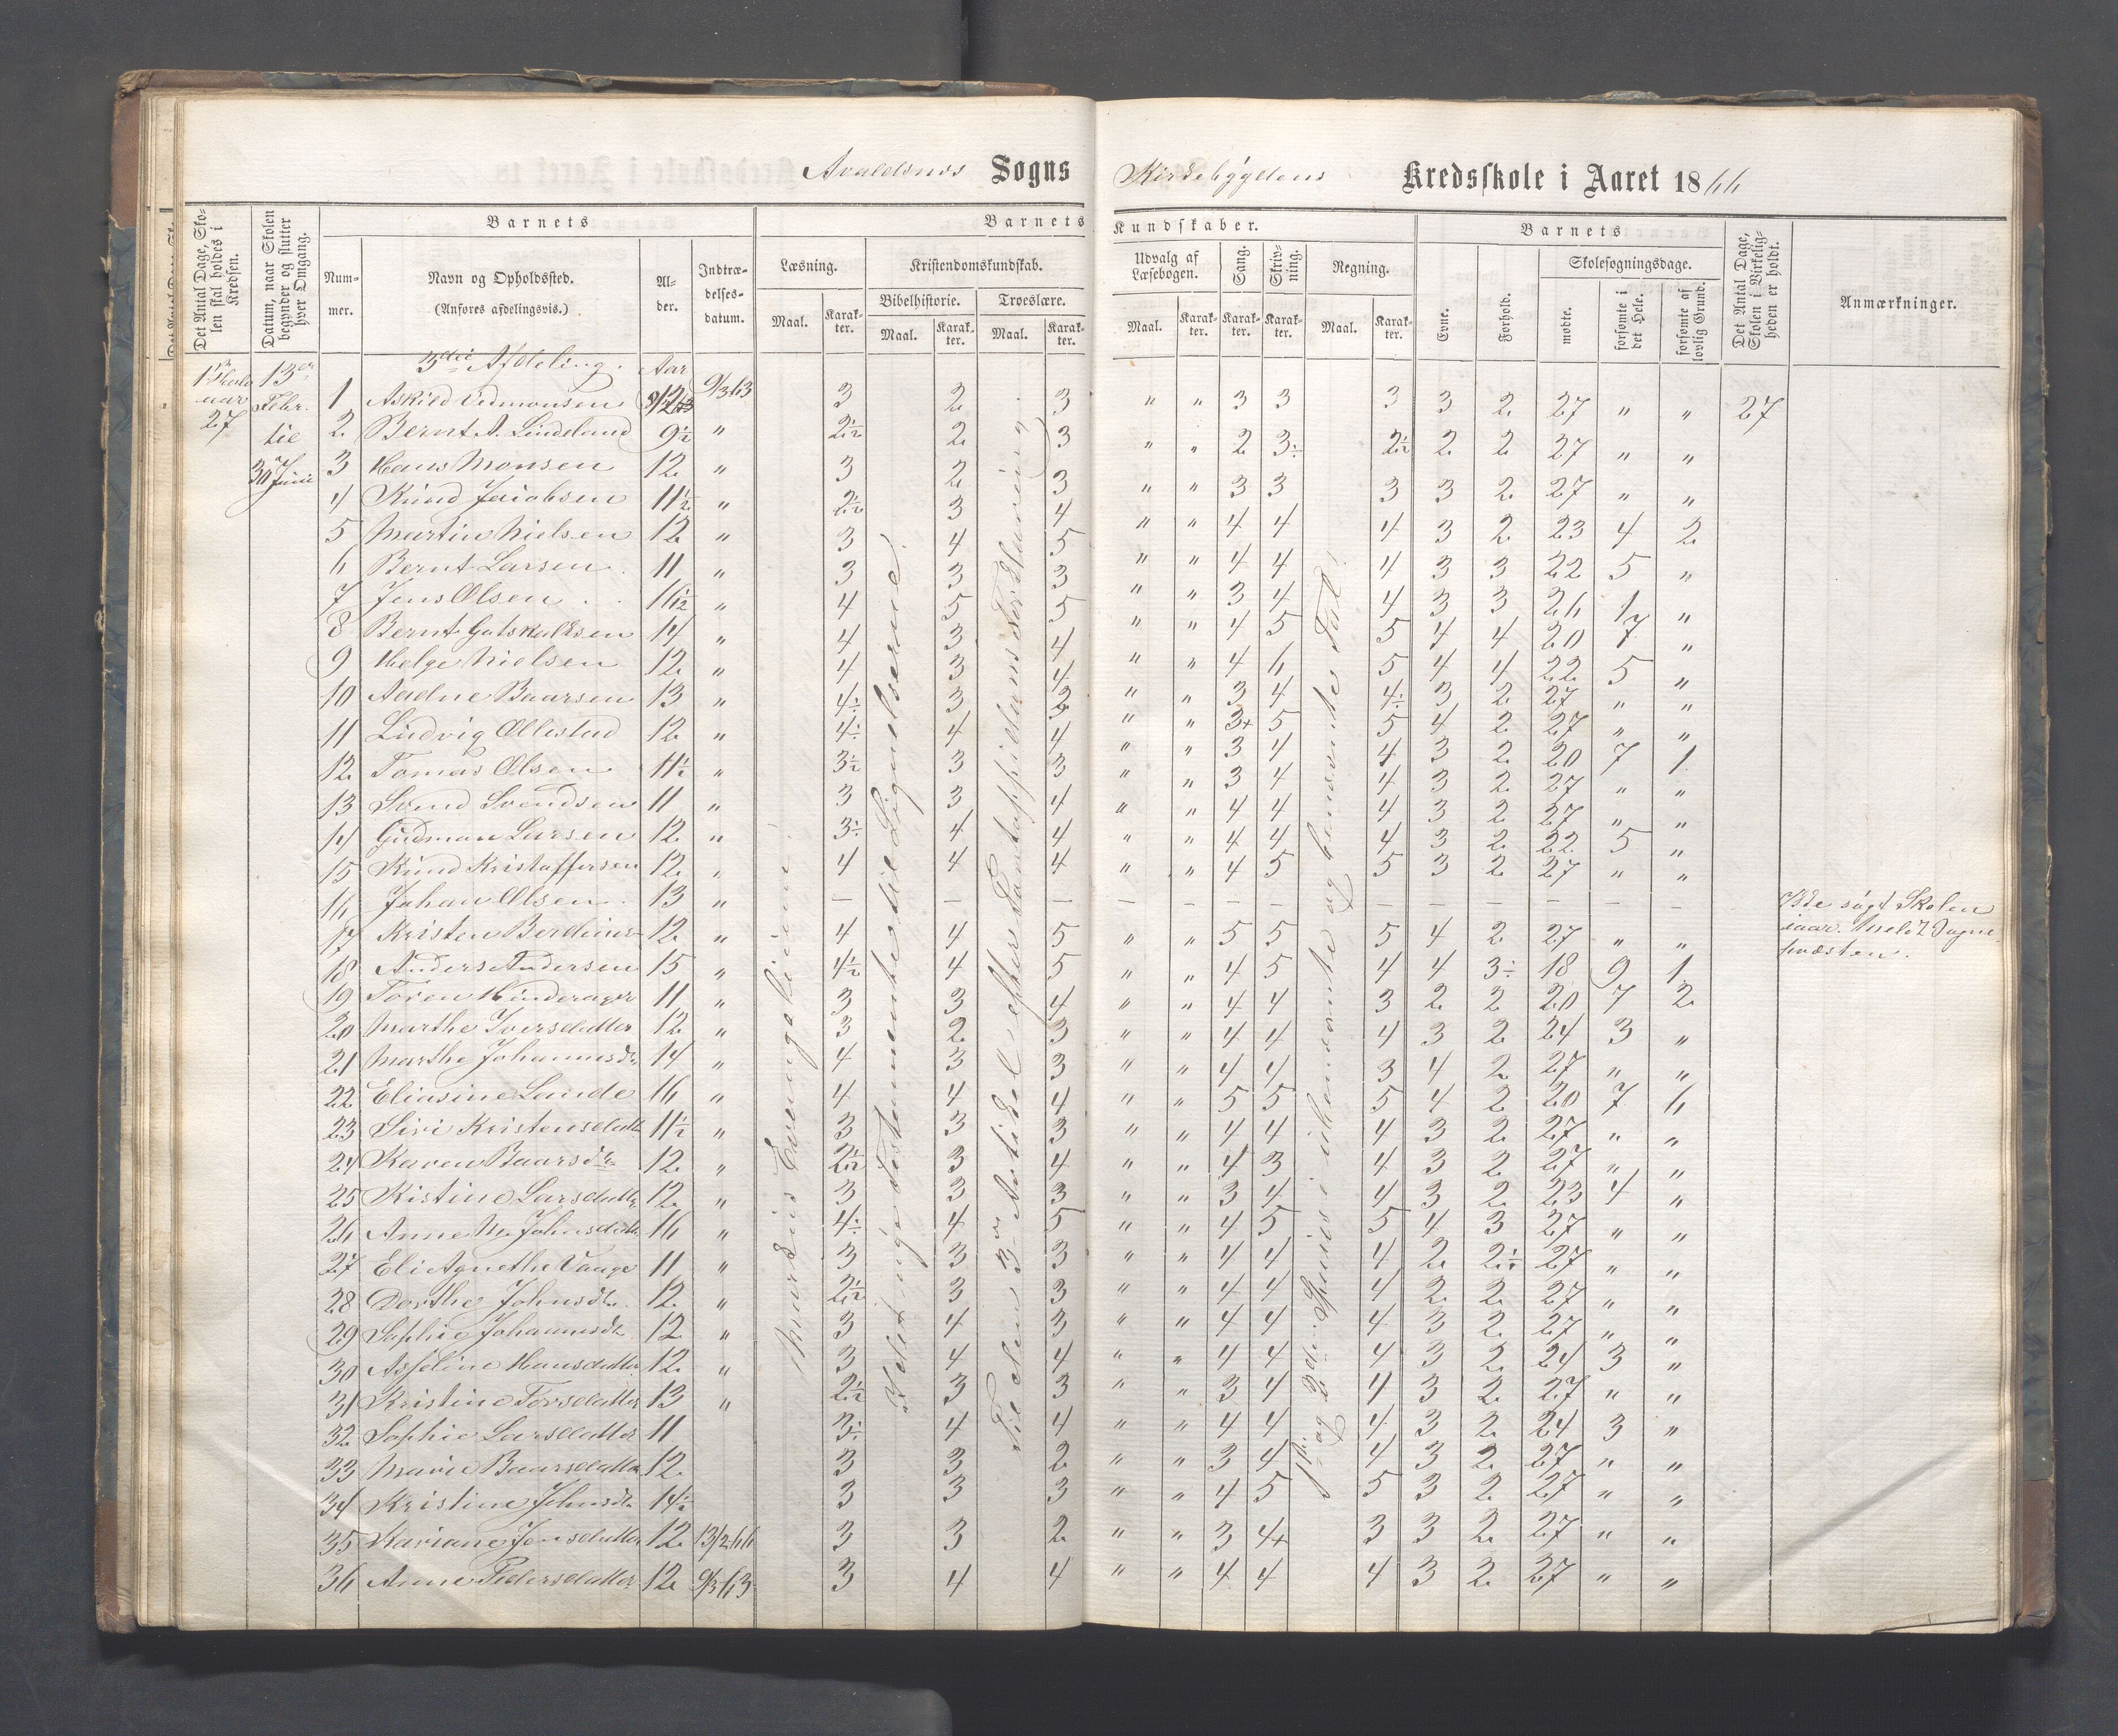 Avaldsnes Sogns
Kirkebygdens Kredsskole i Aaret 1866
Det Antal Dage, Skolen skal holdes i Kredsen.
Datum, naar Skolen begynder og slutter hver Omgang.
Barnets
Nummer.
Navn og Opholdssted.
(Anføres afdelingsvis.)
Alder.
Indtrædelsesdatum.
Barnets Kundskaber.
Læsning. Maal. Karakter.
Kristendomskundskab.
Bibelhistorie. Maal. Karakter.
Troeslære. Maal. Karakter.
Udvalg af Læsebogen. Maal. Karakter.
Sang. Karakter.
Skrivning. Karakter.
Regning. Maal. Karakter.
Barnets
Evne.
Forhold.
Skolesøgningsdage.
mødte.
forsømte i det Hele.
forsømte af lovlig Grund.
Det Antal Dage, Skolen i Virkeligheden er holdt.
Anmærkninger.
3die Afdeling. Aar
27
13de Febr. til 30 Juni
1 Askild Vedmonsen 9/3 63 3 2 3 " " 3 3 3 3 2 27 " " 27
2 Bernt A. Lindeland 9½ " 2½ 2 3 " " 2 3÷ 2½ 2 2 27 " "
3 Hans Monsen 12 " 3 2 3 " " 3 3 3 3 2 27 " "
4 Knud Jacobsen 11½ " 2½ 3 4 " " 4 4 4 3 2 23 4 2
5 Martin Nielsen 12 " 3 4 5 " " 4 4 4 3 3 22 5 "
6 Bernt Larsen 11 " 3 3 3 " " 3 4 4 3 3 26 1 "
7 Jens Olsen " 4 5 5 " " 4 5 5 4 4 20 7 "
8 Bernt Gutskalksen 14 " 4 3 4 " " 4 6 5 4 4 22 5 "
9 Helge Nielsen 12 " 4 3 4 " " 3 4 4÷ 3 2 27 " "
10 Aadne Baarsen 13 " 4÷ 3 " " 3+ 5 5 4 2 27 " "
11 Ludvig Ollestad 12 " 4÷ 4 4 " " 3 4 4 3 2 20 7 1
12 Tomas Olsen 11½ " 3½ 3 3 " " 3 4 4 3 2 27 " "
13 Svend Svendsen 11 " 3 3 4 " " 4 4 4 3 2 27 " "
14 Gudmon Larsen 12 " 3÷ 4 4 " " 4 4 4 3 2 22 5 "
15 Knud Kristoffersen 12 " 4 4 4 " " 4 5 5 3 2 27 " "
16 Johan Olsen 13 " – – – – – – – – – – – Ikke søgt Skolen iaar. Sogne præsten.
17 Kristen Berdines 12 " 4 4 5 " " 5 5 5 4 2 27 " "
18 Anders Andersen 15 " 4½ 4 5 " " 4 5 4 4 3÷ 18 9 1
19 Toren Hinderager 11 " 3 3 4 " " 4 4 3 2 2 20 7 2
20 Marthe Iversdatter 12 " 3 2 3 " " 4 4 4 3 2 24 3 "
21 Marthe Johannesdr 14 " 4 3 3 " " 4 4 3 4 2 27 " "
22 Eliasine Lande 16 " 4 4 4 " " 5 5 5 4 2 20 7 6
23 Siri Kristensdatter 11½ " 3 3 3 " " 4 4 4 3 2 27 " "
24 Karen Baarsdr 12 " 2½ 3 4 " " 4 3 4 3 2 27 " "
25 Kistine Larsdatter 12 " 3 3 3 " " 3 4 4 3 2 23 4 "
26 Anne M. Johnsdatter 16 " 4÷ 4 5 " " 4 5 5 4 3 27 " "
27 Eli Agnethe Vange 11 " 3 3 3 " " 4 4 4 2 2÷ 27 " "
28 Dorthe Johnsdr 12 " 2½ 3 3 " " 4 4 4 2 2 27 " "
29 Sophie Johannesdr 12 " 3 4 3 " " 4 4 4 3 2 27 " "
30 Asseline Hansdatter 12 " 3 4 4 " " 4 4 4 3 2 24 3 "
31 Kristine Torsdatter 13 " 2½ 3 3 " " 3 4 4 3 2 27 " "
32 Sophie Larsdatter 11 3÷ 4 4 " " 4 4 4 3 2 24 3 "
33 Marie Baarsdatter 12 3 3 2 " " 3 4 4 3 2 27 " "
34 Kristine Johnsdr 14½ 3 3 3 " " 4 5 5 3 2 27 " "
35 Mariane Jensdatter 12 13/2 66 3 3 2 " " 3 4+ 3 3 2 27 " "
36 Anne Pedersdatter 12 9/3 63 3 4 4 " " 4 4 4 3 2 27 " "
Markus Evangelium!
Det nye Testamente til Lignelserne!
Til den 3die Artikel efter Pontoppidans Forklaring
1ste og 2den Species i ubenævnte og benævnte Tal!